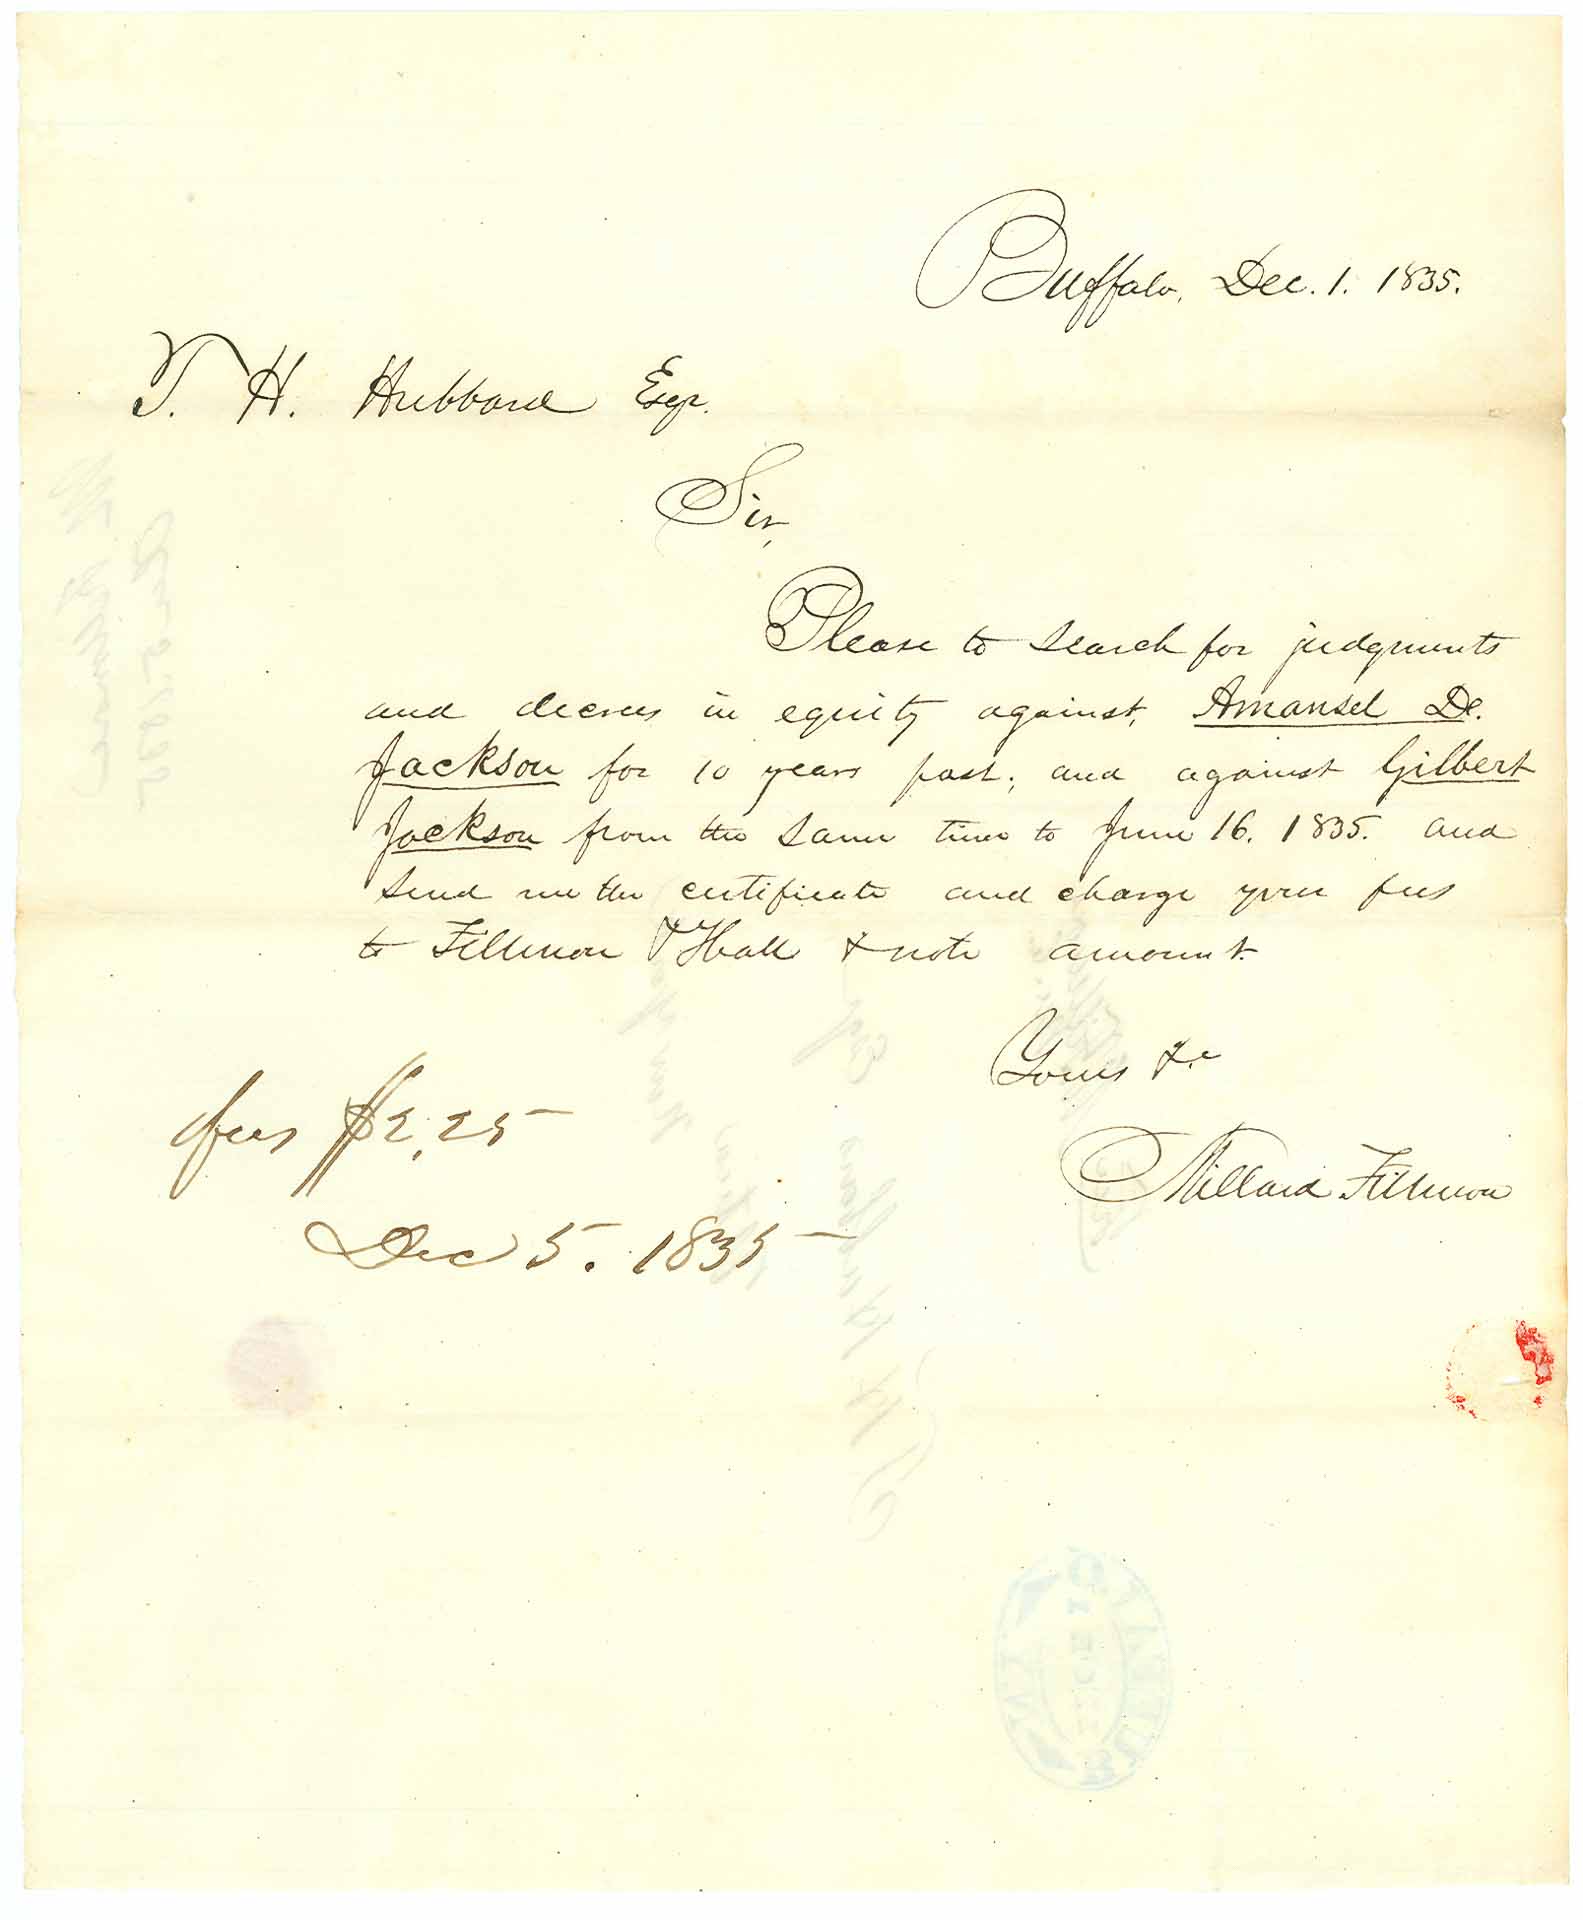 Buffalo, Dec. 1. 1835.
T. H. Hubbard Esqr.
Sir,
Please to search for judgments
and decrees in equity against, Amansel De.
Jackson for 10 years past; and against Gilbert
Jackson from the same time to June 16. 1835. and
send me the certificate and charge your fees
to Fillmore & Hall & note amount.
Yours &c
Millard Fillmore
fees $2.25
Dec 5. 1835